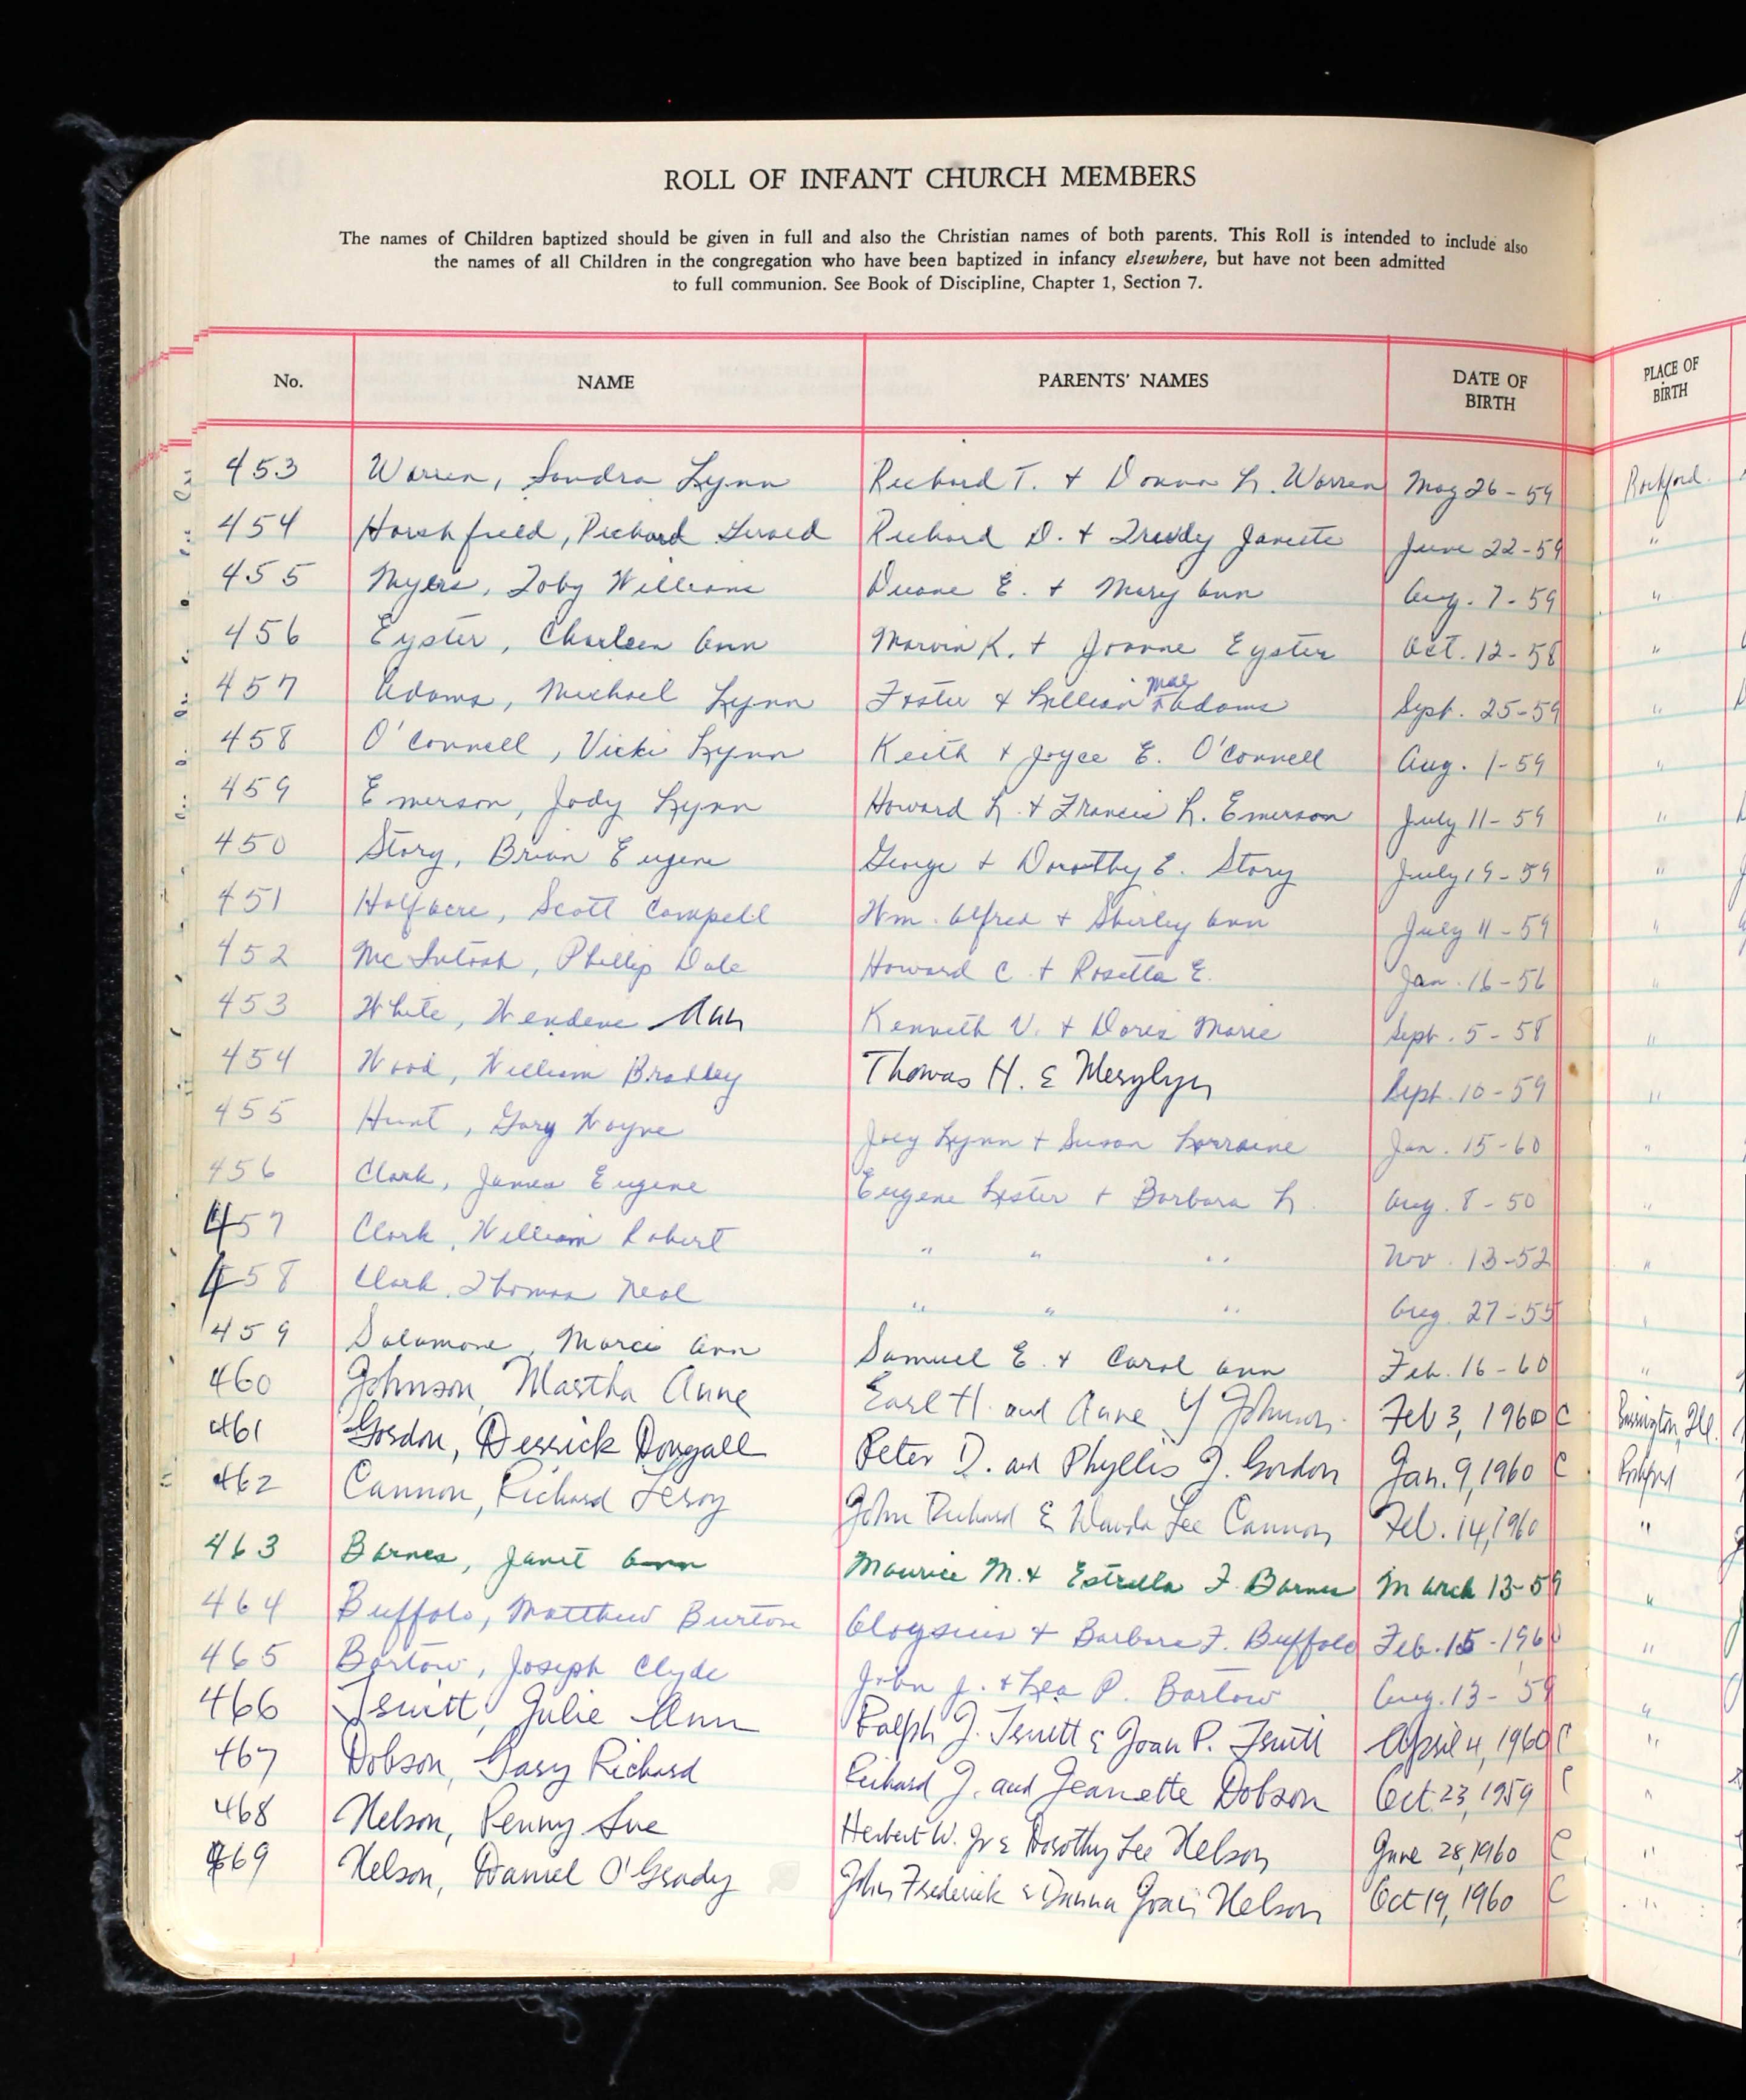 ROLL OF INFANT CHURCH MEMBERS
The names of Children baptized should be given in full and also the Christian names of both parents. This Roll is intended to include also
the names of all Children in the congregation who have been baptized in infancy elsewhere, but have not been admitted
to full communion. See Book of Discipline, Chapter 1, Section 7.
No. NAME PARENTS' NAMES DATE OF BIRTH PLACE OF BIRTH
453 Warren, Sandra Lynn Richard T. + Donna L. Warren May 26-59 Rockford
454 Harshfield, Richard Richard D. + Trudy Janette June 22-59 "
455 Myers, Toby William Duane E. + Mary Ann Aug. 7-59 "
456 Eyster, Charleen Ann Marvin K. + Joanne Eyster Oct. 12-58 "
457 Adams, Michael Lynn Foster + Lillian Mae Adams Sept. 25-59 "
458 O'Connell, Vicki Lynn Keith + Joyce E. O'Connell Aug. 1-59 "
459 Emerson, Jody Lynn Howard L. + Francis L. Emerson July 11-59 "
450 Story, Brian Eugene George + Dorothy E. Story July 19-59 "
451 Halfacre, Scott Campell Wm. Alfred + Shirley Ann July 11-59 "
452 McIntosh, Phillip Dale Howard C. + Rosetta E. Jan. 16-56 "
453 White, Wendene Ann Kenneth V. + Doris Marie Sept. 5-58 "
454 Wood, William Bradley Thomas H. & Merylyn Sept. 10-59 "
455 Hunt, Gary Wayne Joey Lynn + Susan Lorraine Jan. 15-60 "
456 Clark, James Eugene Eugene Lester + Barbara L. Aug. 8-50 "
457 Clark, William Robert " " " Nov. 13-52 "
458 Clark, Thomas Neal " " " Aug. 27-55 "
459 Salamone, Marci Ann Samuel E. + Carol Ann Feb. 16-60 "
460 Johnson, Martha Anne Earl H. and Anne Y Johnson Feb 3, 1960 C Barrington, Ill.
461 Gordon, Derrick Dougall Peter D. and Phyllis J. Gordon Jan. 9, 1960 C Rockford
462 Cannon, Richard Leroy John Richard & Wanda Lee Cannon Feb. 14, 1960 "
463 Barnes, Janet Ann Maurice M. + Estrella F. Barnes March 13-59 "
464 Buffalo, Matthew Burton Aloysius + Barbara F. Buffalo Feb. 15-1960 "
465 Bartow, Joseph Clyde John J. + Lea P. Bartow Aug. 13-'59 "
466 Julie Ann Ralph J. & Joan P. April 4, 1960 C "
467 Dobson, Gary Richard Richard J. and Jeanette Dobson Oct. 23, 1959 C "
468 Nelson, Penny Sue Herbert W. Jr & Dorothy Lee Nelson June 28, 1960 C "
469 Nelson, Daniel O'Grady John Frederick & Donna Joan Nelson Oct 19, 1960 C "